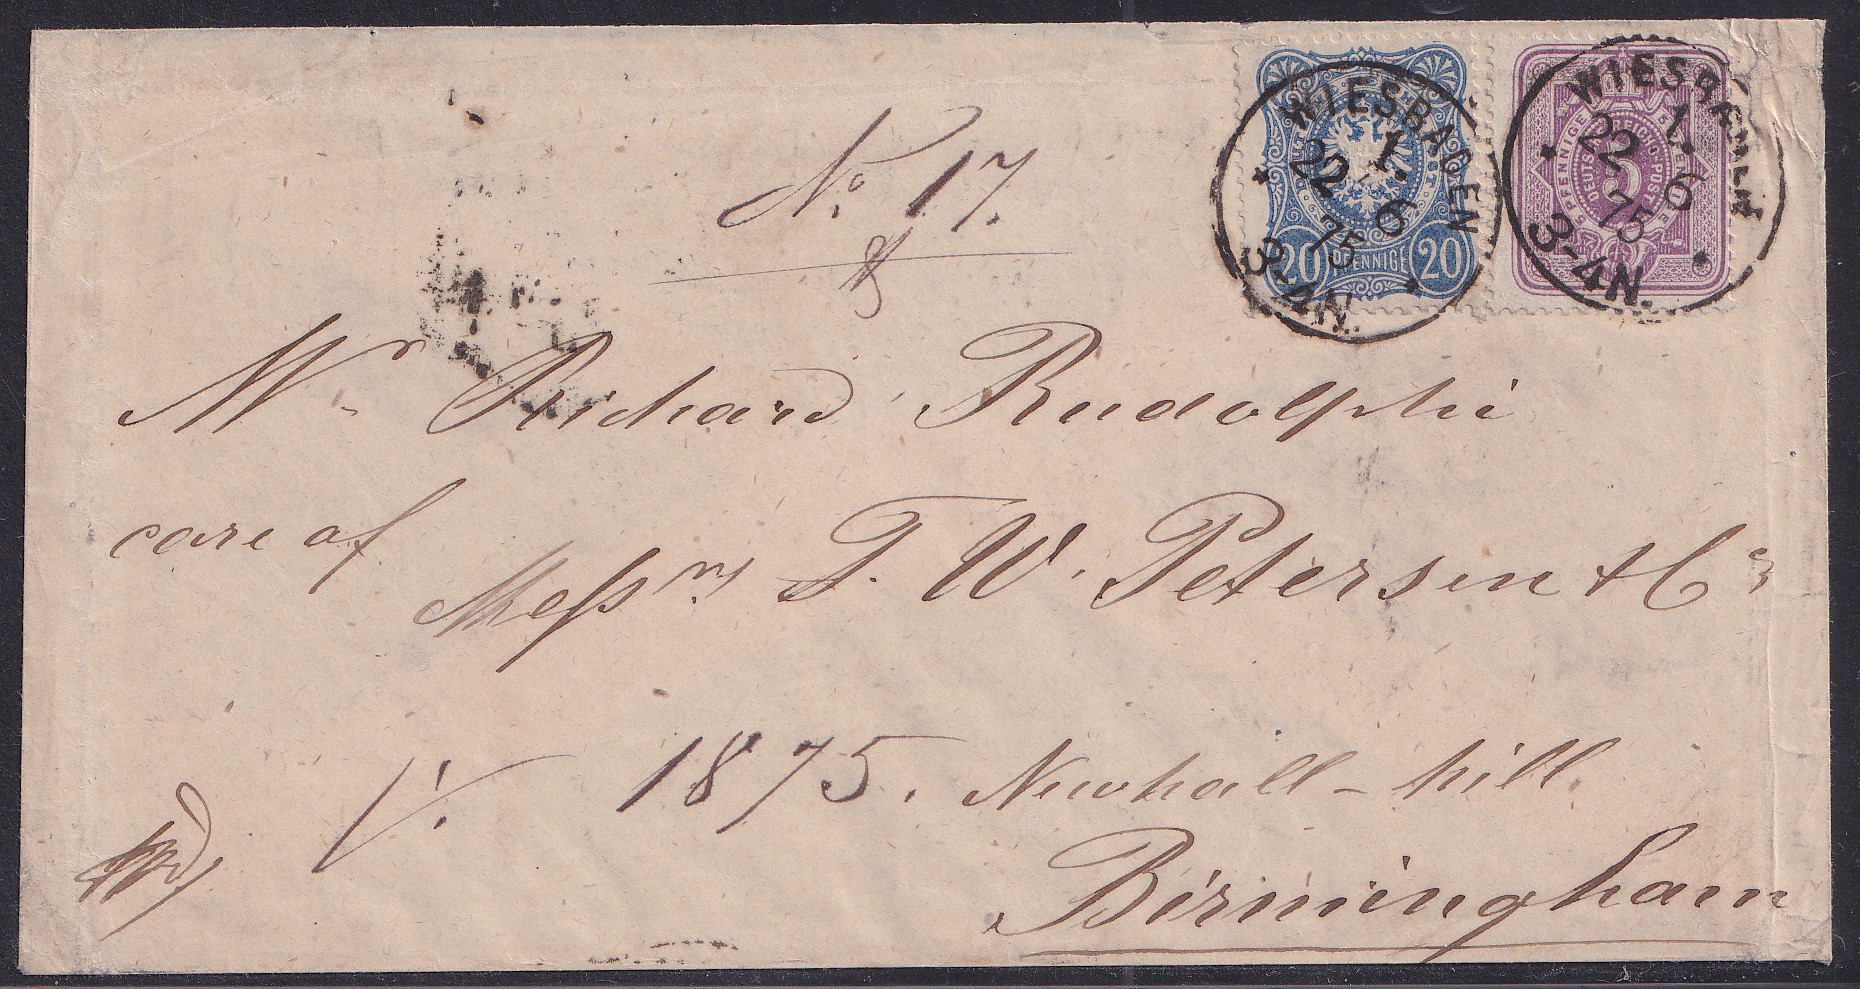 No 17.
WIESBADEN
1.
22 6
75
3-4N.
20 PFENNIGE 20
WIESBADEN
1.
22 6
75
3-4N.
5 PFENNIGE
DEUTSCHE REICHS-POST
5
Mr Richard Rudolphi
care of
Messrs T. W. Petersen & Co
1875. Newhall-hill.
Birmingham